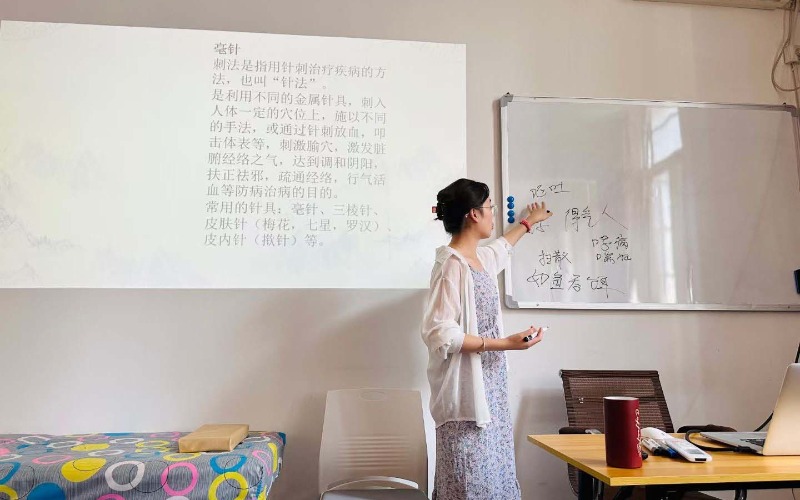 毫针
刺法是指用针刺治疗疾病的方
法，也叫“针法”。
是利用不同的金属针具，刺入
人体一定的穴位上，施以不同
的手法，或通过针刺放血，叩
击体表等，刺激腧穴，激发脏
腑经络之气，达到调和阴阳，
扶正祛邪，疏通经络，行气活
血等防病治病的目的。
常用的针具：毫针、三棱针、
皮肤针（梅花，七星，罗汉）、
皮内针（揿针）等。
呕吐
得气
扫散